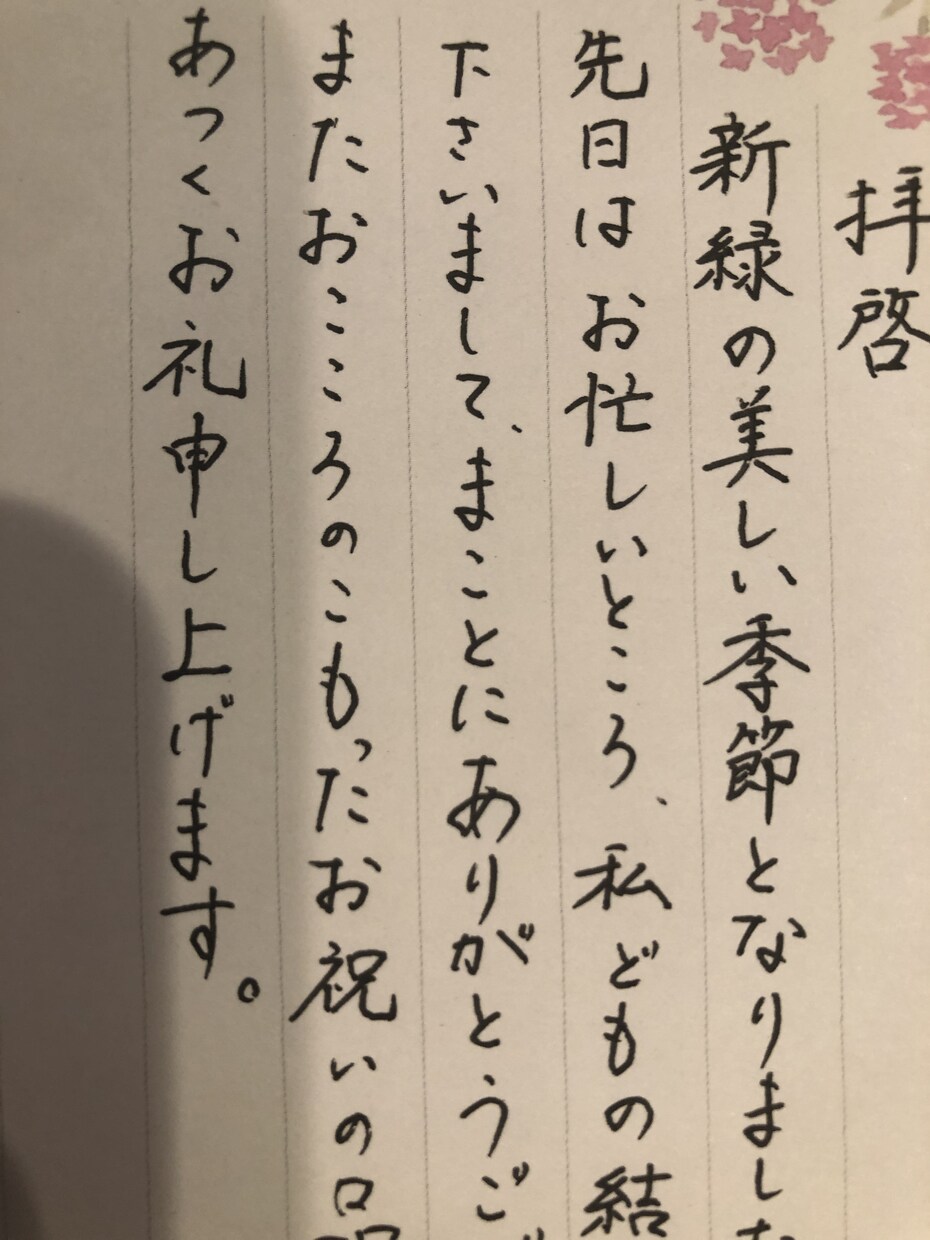 拝啓
新緑の美しい季節となりました
先日はお忙しいところ、私どもの結
下さいまして、まことにありがとうござ
またおこころのこもったお祝いの品
あつくお礼申し上げます。